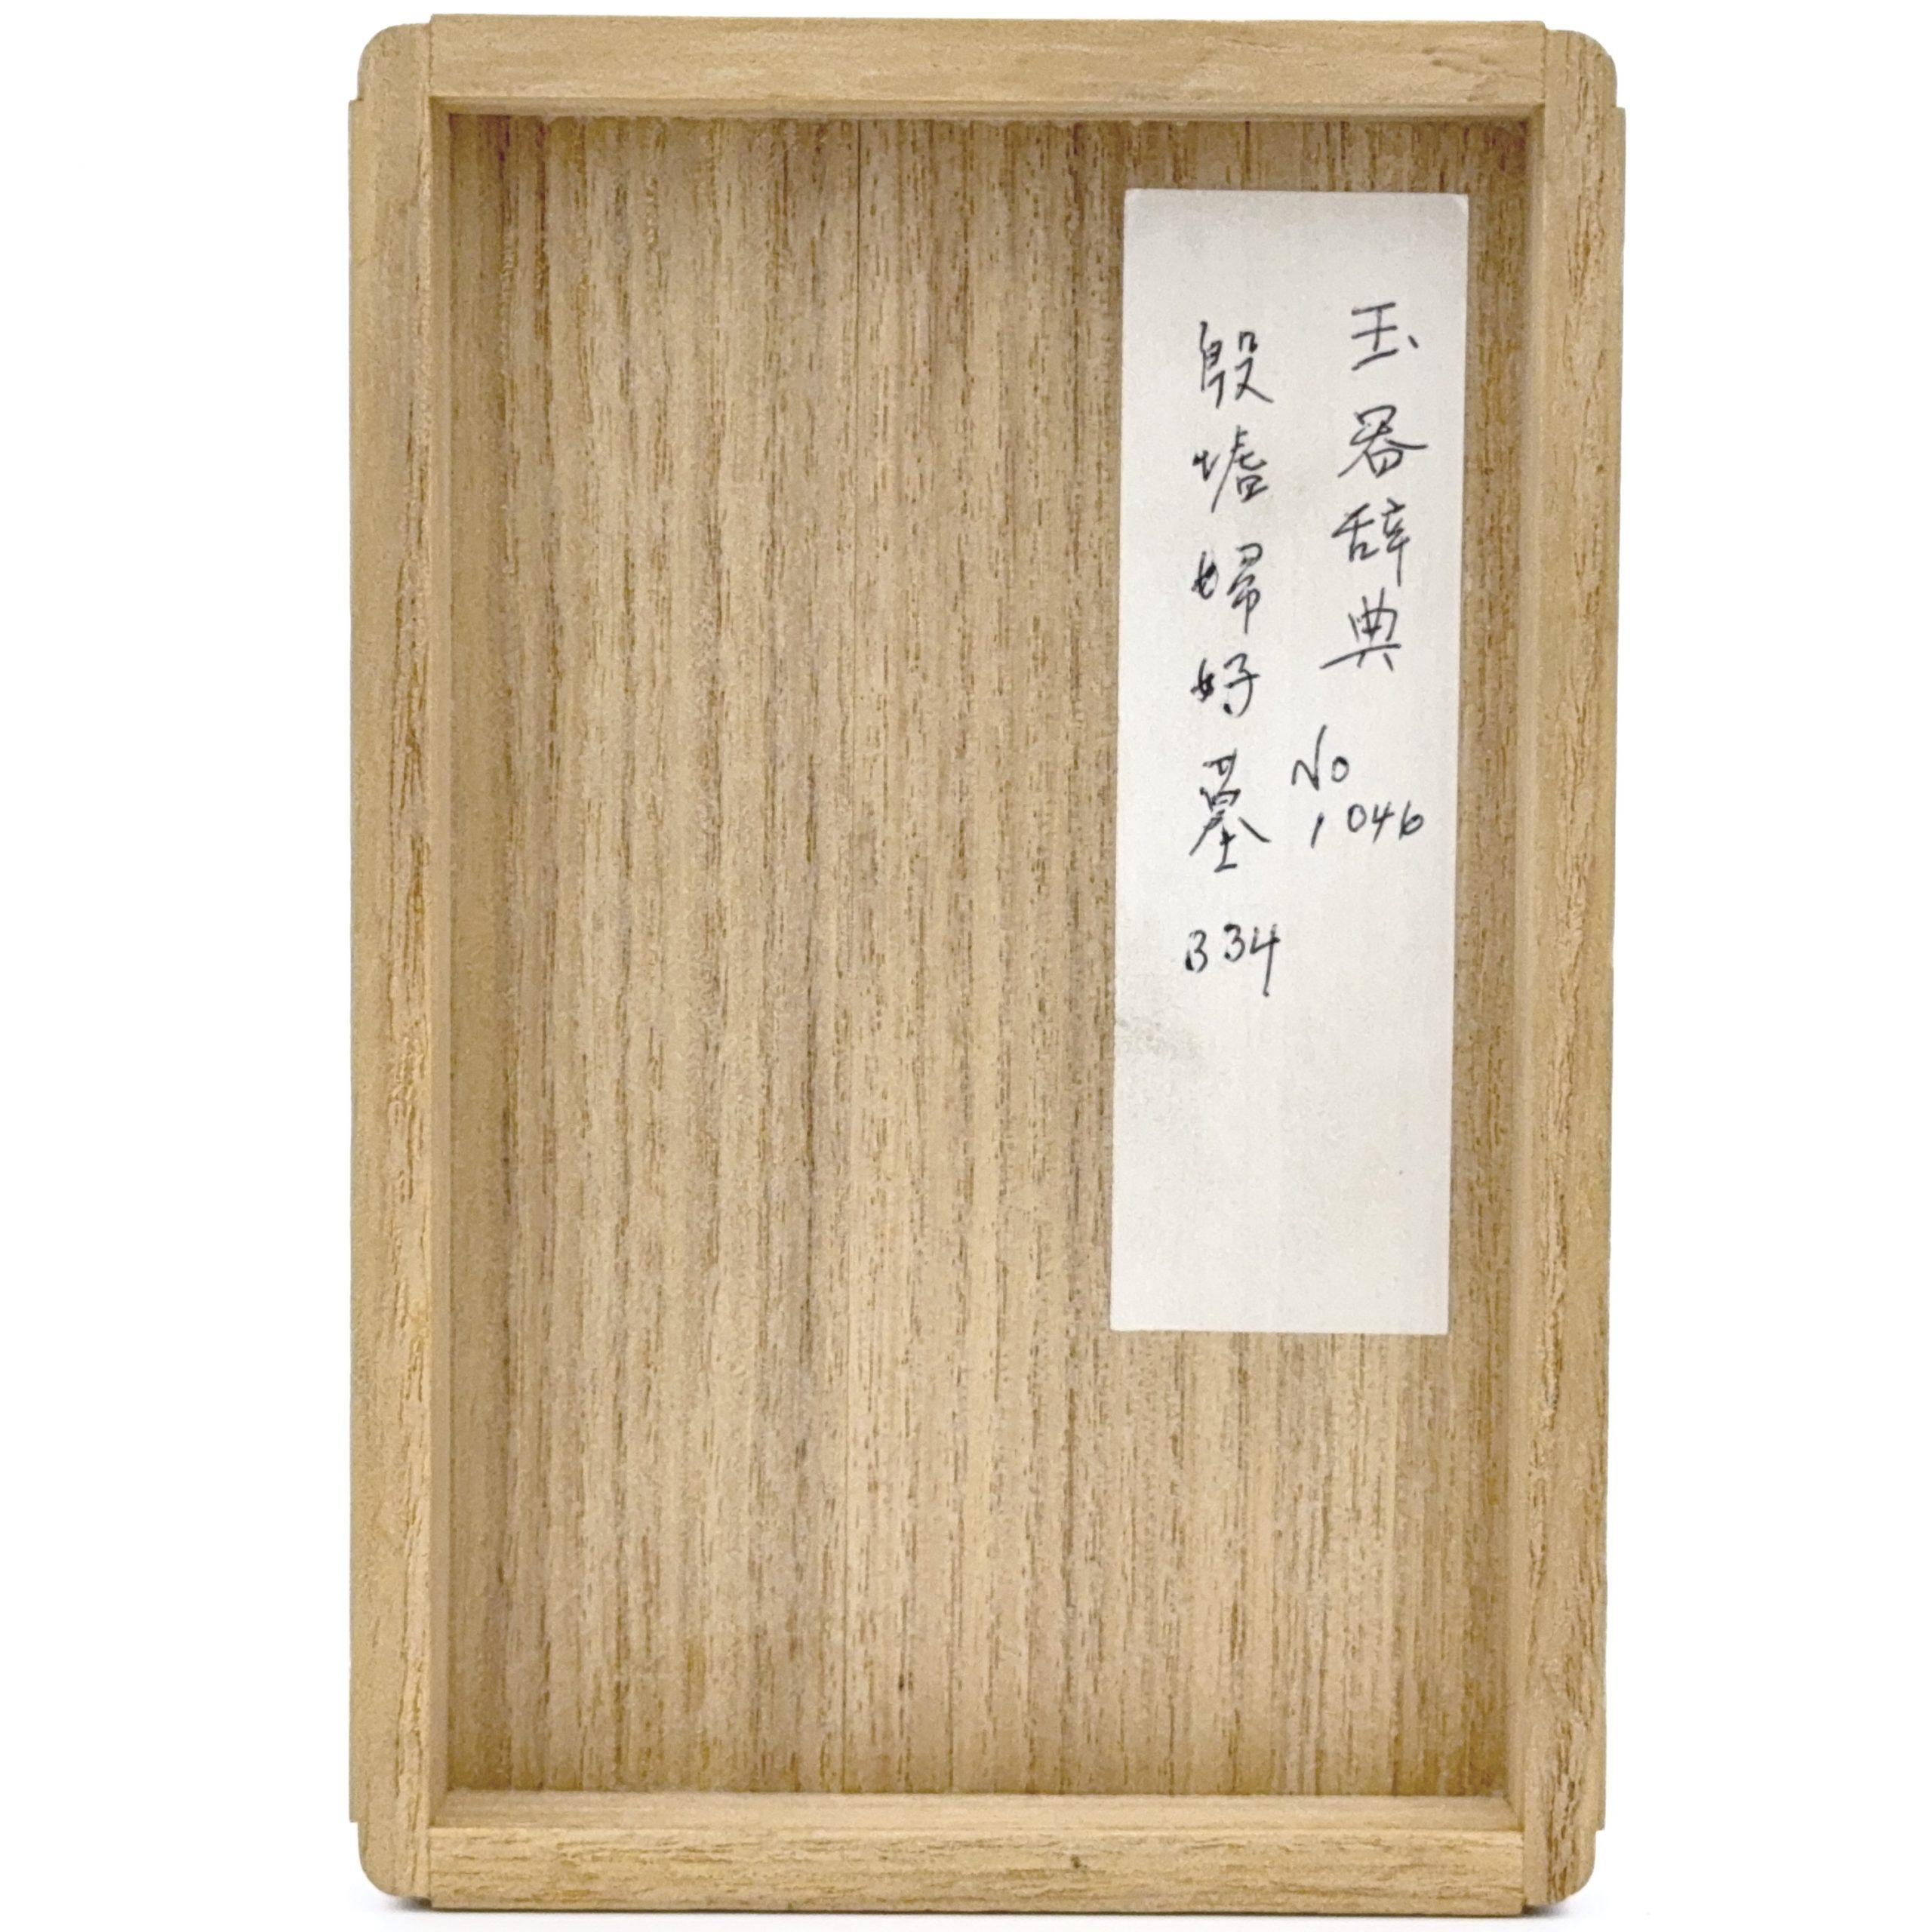 玉器辞典 No 1046
殷墟婦好墓 334